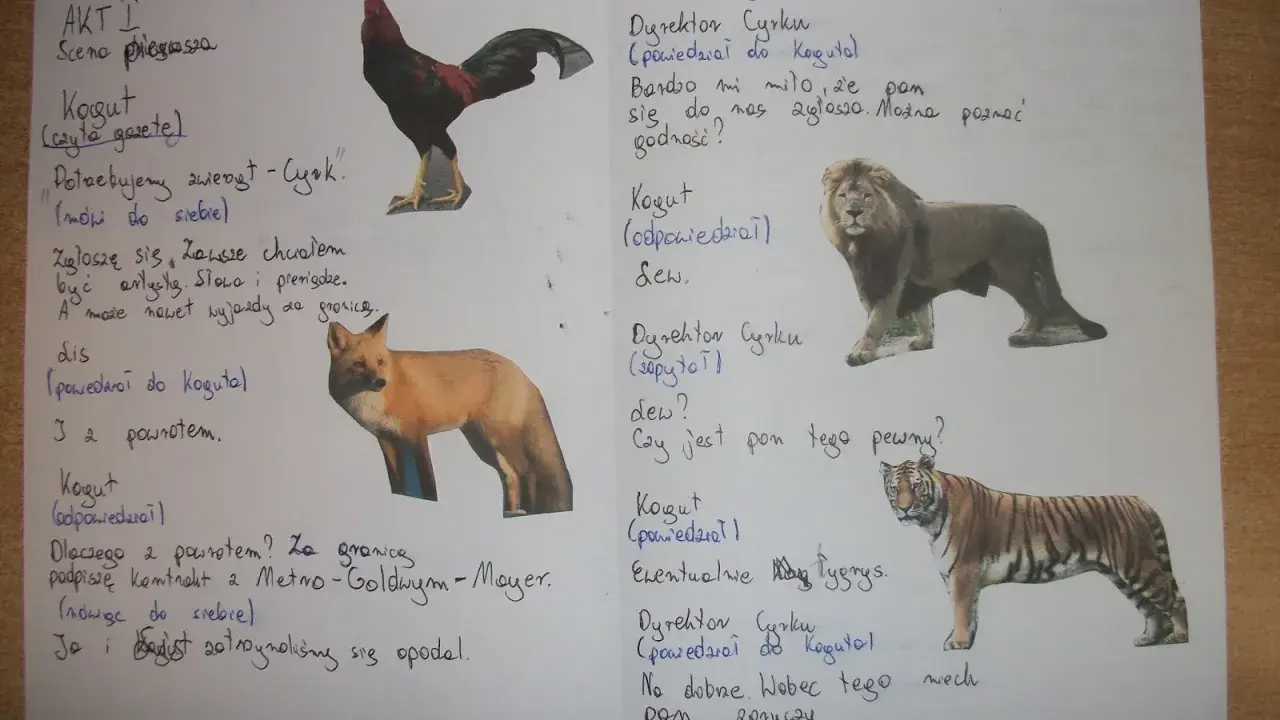 AKT I
Scena pierwsza
Kogut
(czyta gazetę)
"Potrzebujemy zwierząt - Cyrk".
(mówi do siebie)
Zgłoszę się. Zawsze chciałem
być artystą. Sława i pieniądze.
A może nawet wyjazdy za granicę.
Lis
(powiedział do Koguta)
I z powrotem.
Kogut
(odpowiedział)
Dlaczego z powrotem? Za granicą
podpiszę kontrakt z Metro-Goldwym-Mayer.
(mówiąc do siebie)
Ja i zatrzymaliśmy się opodal.
Dyrektor Cyrku
(powiedział do Koguta)
Bardzo mi miło, że pan
się do nas zgłasza. Można poznać
godność?
Kogut
(odpowiedział)
Lew.
Dyrektor Cyrku
(zapytał)
Lew?
Czy jest pan tego pewny?
Kogut
(powiedział)
Ewentualnie Tygrys.
Dyrektor Cyrku
(powiedział do Koguta)
No dobrze. Wobec tego niech
pan zaryczy